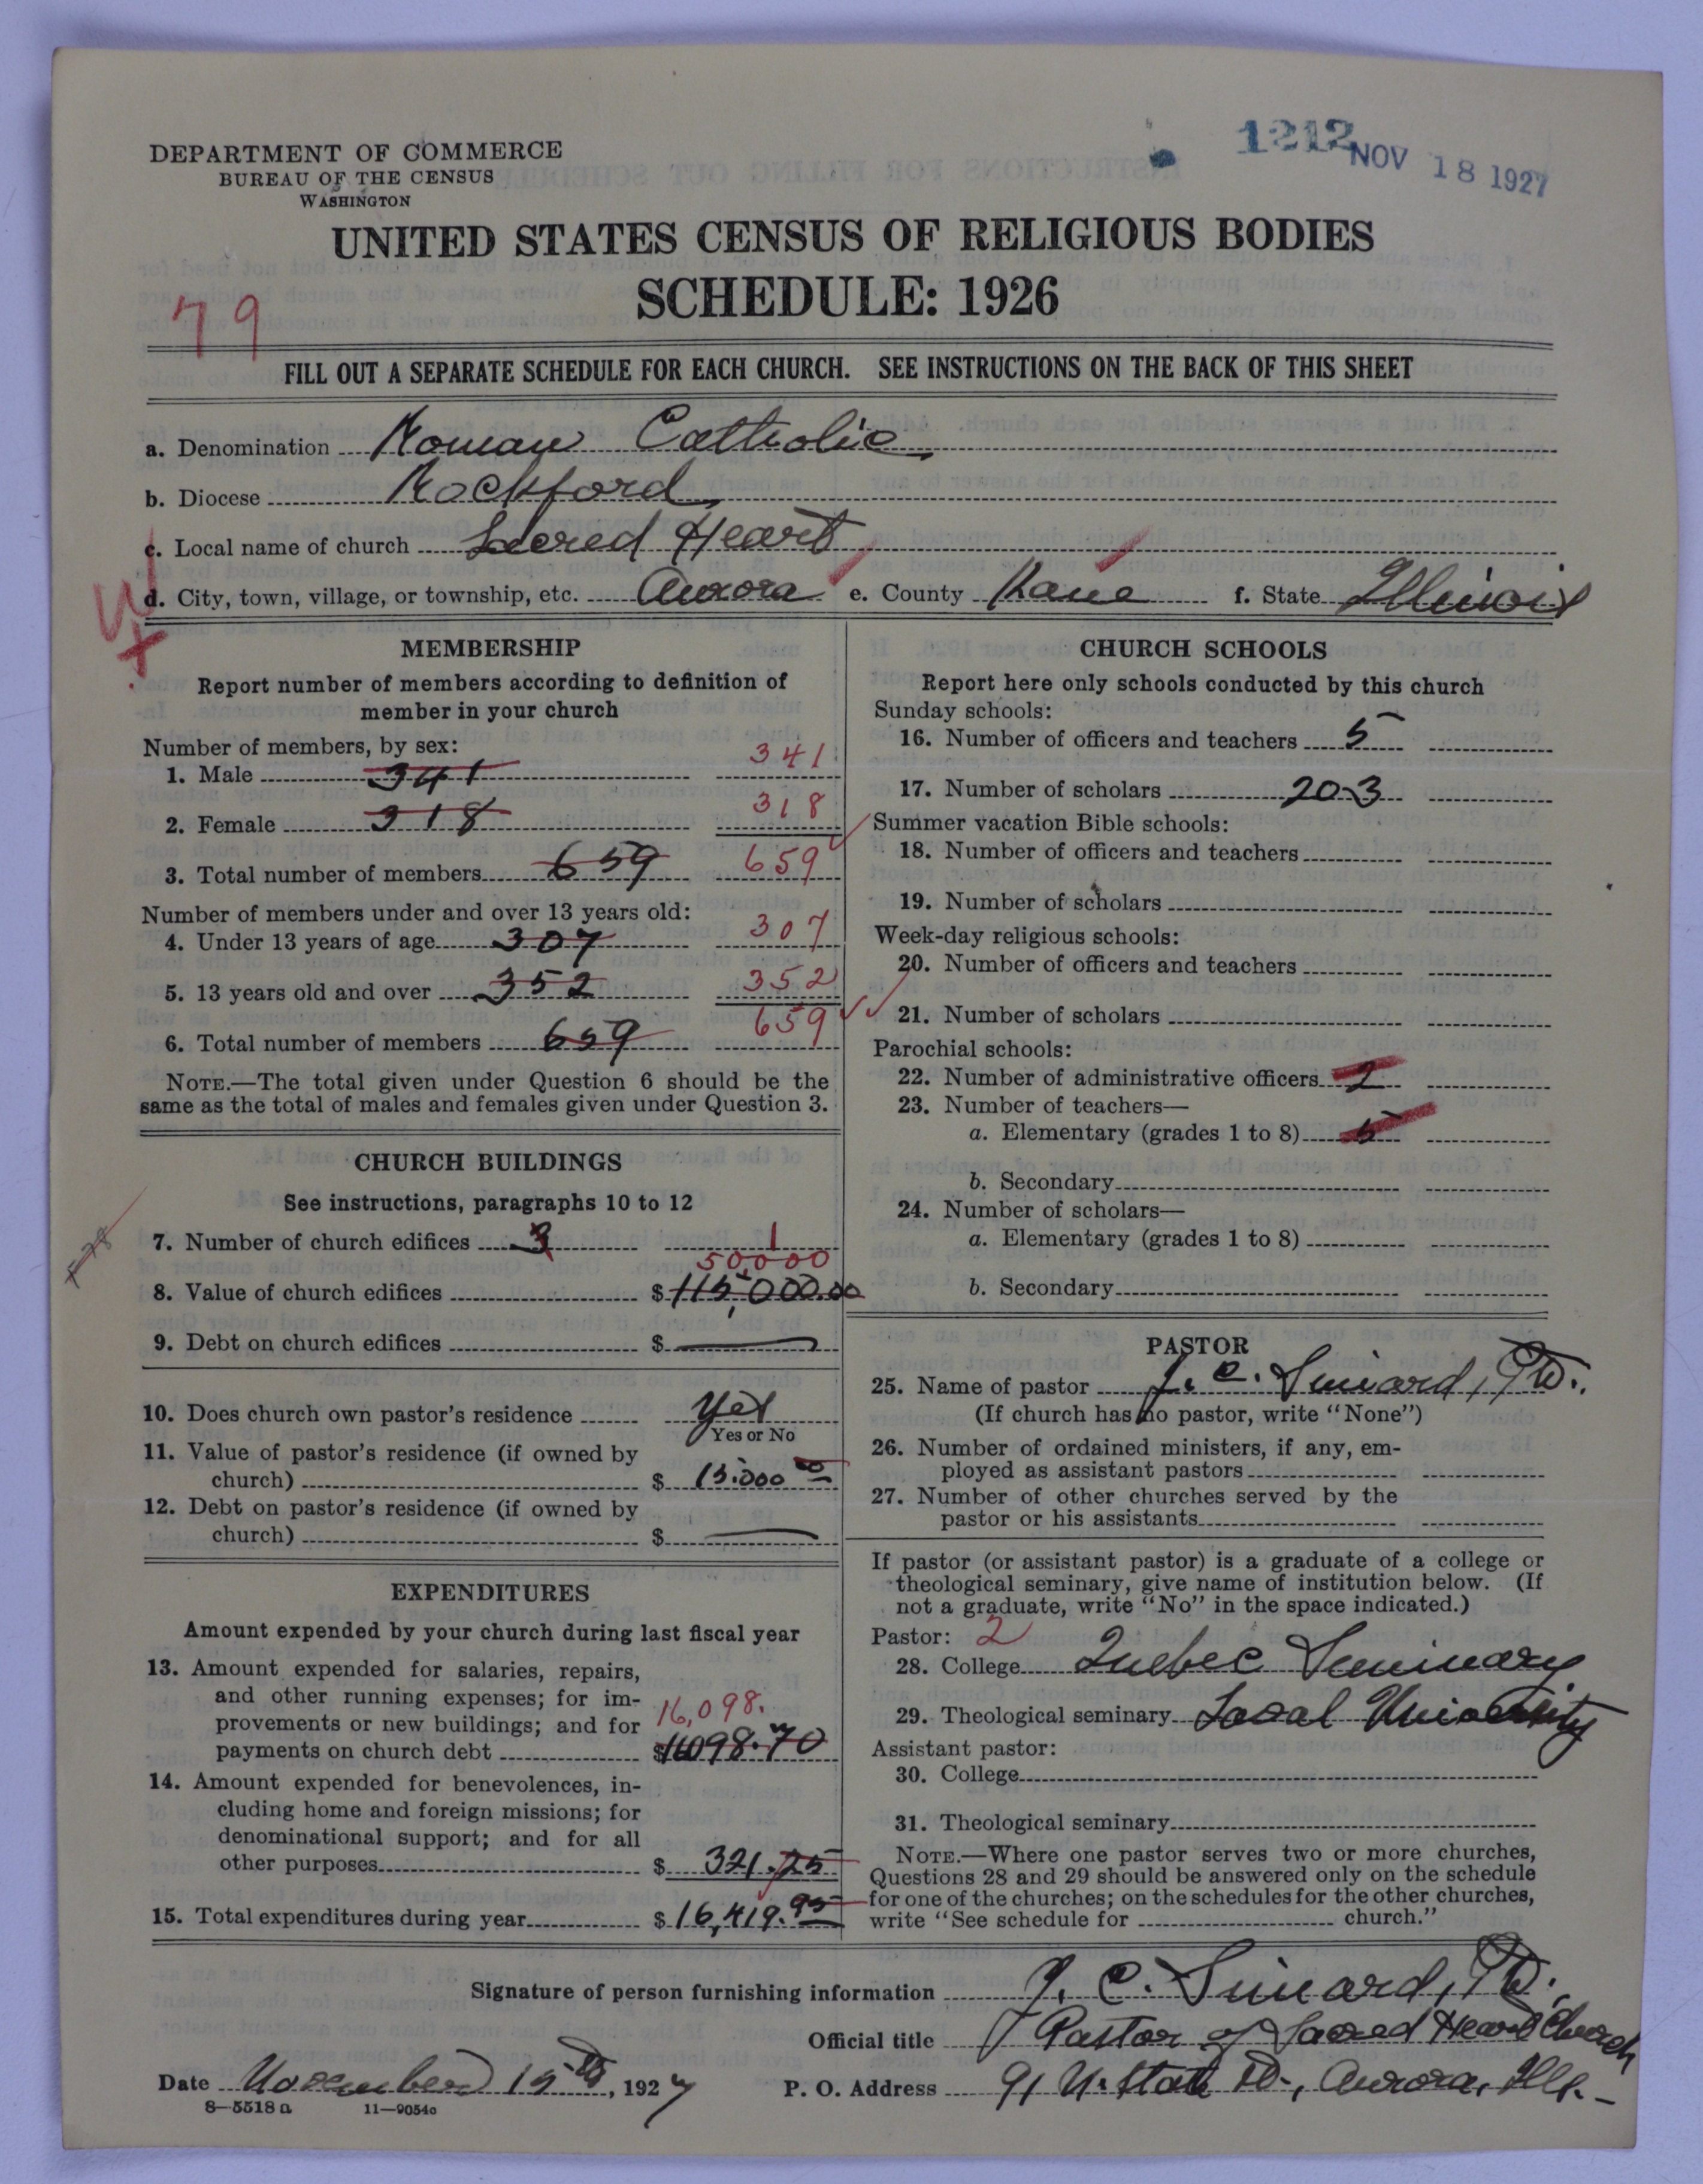 1212 NOV 18 1927
DEPARTMENT OF COMMERCE
BUREAU OF THE CENSUS
WASHINGTON
UNITED STATES CENSUS OF RELIGIOUS BODIES
SCHEDULE: 1926
79
FILL OUT A SEPARATE SCHEDULE FOR EACH CHURCH. SEE INSTRUCTIONS ON THE BACK OF THIS SHEET
a. Denomination Roman Catholic
b. Diocese Rockford
c. Local name of church Sacred Heart
d. City, town, village, or township, etc. Aurora e. County Kane f. State Illinois
MEMBERSHIP
Report number of members according to definition of
member in your church
Number of members, by sex:
1. Male 341 341
2. Female 318 318
3. Total number of members 659 659
Number of members under and over 13 years old:
4. Under 13 years of age 307 307
5. 13 years old and over 352 352
6. Total number of members 659 659
NOTE.—The total given under Question 6 should be the
same as the total of males and females given under Question 3.
CHURCH BUILDINGS
See instructions, paragraphs 10 to 12
7. Number of church edifices 3 1
50,000
8. Value of church edifices $115,000.00
9. Debt on church edifices $
10. Does church own pastor's residence Yes
Yes or No
11. Value of pastor's residence (if owned by
church) $ 15.000 00
12. Debt on pastor's residence (if owned by
church) $
EXPENDITURES
Amount expended by your church during last fiscal year
13. Amount expended for salaries, repairs,
and other running expenses; for im-
provements or new buildings; and for 16,098.
payments on church debt $16098.70
14. Amount expended for benevolences, in-
cluding home and foreign missions; for
denominational support; and for all
other purposes $ 321.25
15. Total expenditures during year $16,419.95
CHURCH SCHOOLS
Report here only schools conducted by this church
Sunday schools:
16. Number of officers and teachers 5
17. Number of scholars 203
Summer vacation Bible schools:
18. Number of officers and teachers
19. Number of scholars
Week-day religious schools:
20. Number of officers and teachers
21. Number of scholars
Parochial schools:
22. Number of administrative officers 2
23. Number of teachers—
a. Elementary (grades 1 to 8) 5
b. Secondary
24. Number of scholars—
a. Elementary (grades 1 to 8)
b. Secondary
PASTOR
25. Name of pastor J. C. Simard,
(If church has no pastor, write "None")
26. Number of ordained ministers, if any, em-
ployed as assistant pastors
27. Number of other churches served by the
pastor or his assistants
If pastor (or assistant pastor) is a graduate of a college or
theological seminary, give name of institution below. (If
not a graduate, write "No" in the space indicated.)
Pastor: 2
28. College Quebec Seminary
29. Theological seminary Laval University
Assistant pastor:
30. College
31. Theological seminary
NOTE.—Where one pastor serves two or more churches,
Questions 28 and 29 should be answered only on the schedule
for one of the churches; on the schedules for the other churches,
write "See schedule for church."
Signature of person furnishing information J. C. Simard,
Official title Pastor of Sacred Heart Church
Date November 15th, 1927 P. O. Address 91 N. State St., Aurora, Ills.
8—5518a 11—9054c